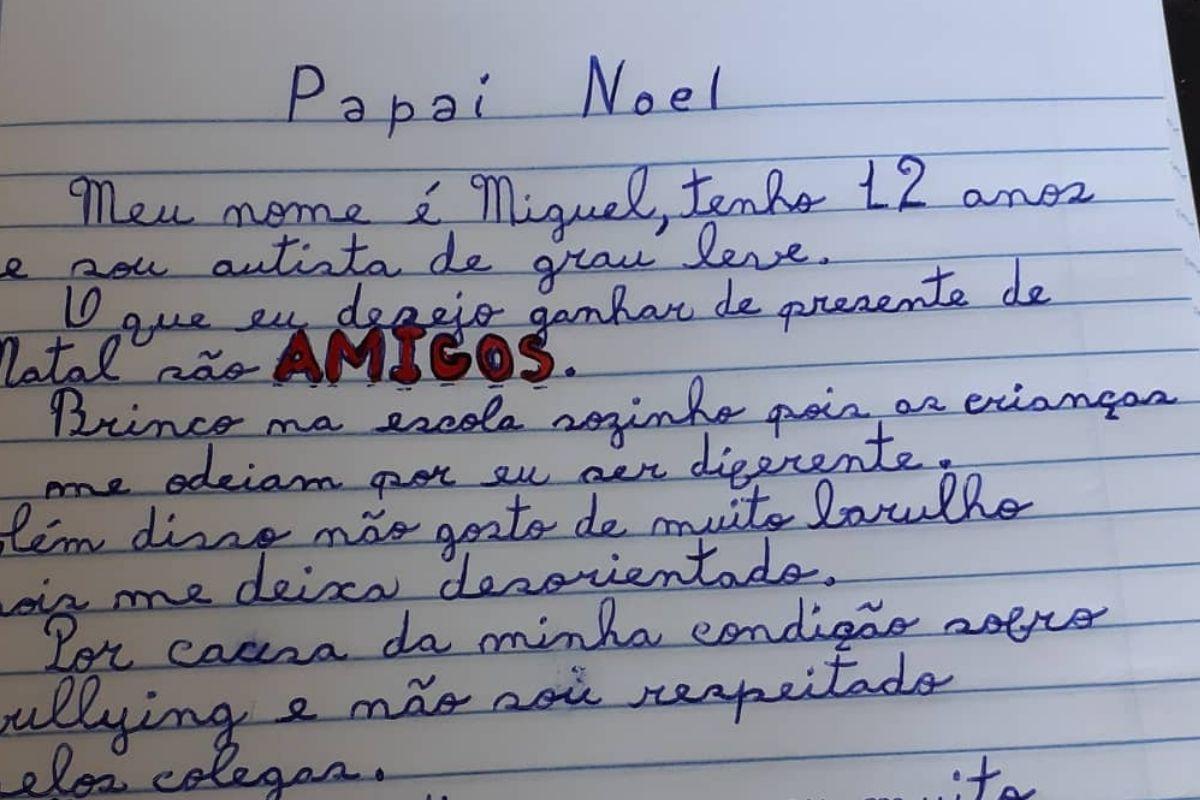 Papai Noel
Meu nome é Miguel, tenho 12 anos
e sou autista de grau leve.
O que eu desejo ganhar de presente de
Natal são AMIGOS.
Brinco na escola sozinho pois as crianças
me odeiam por eu ser diferente.
lém disso não gosto de muito barulho
ois me deixa desorientado.
Por causa da minha condição sofro
ullying e não sou respeitado
elos colegas.